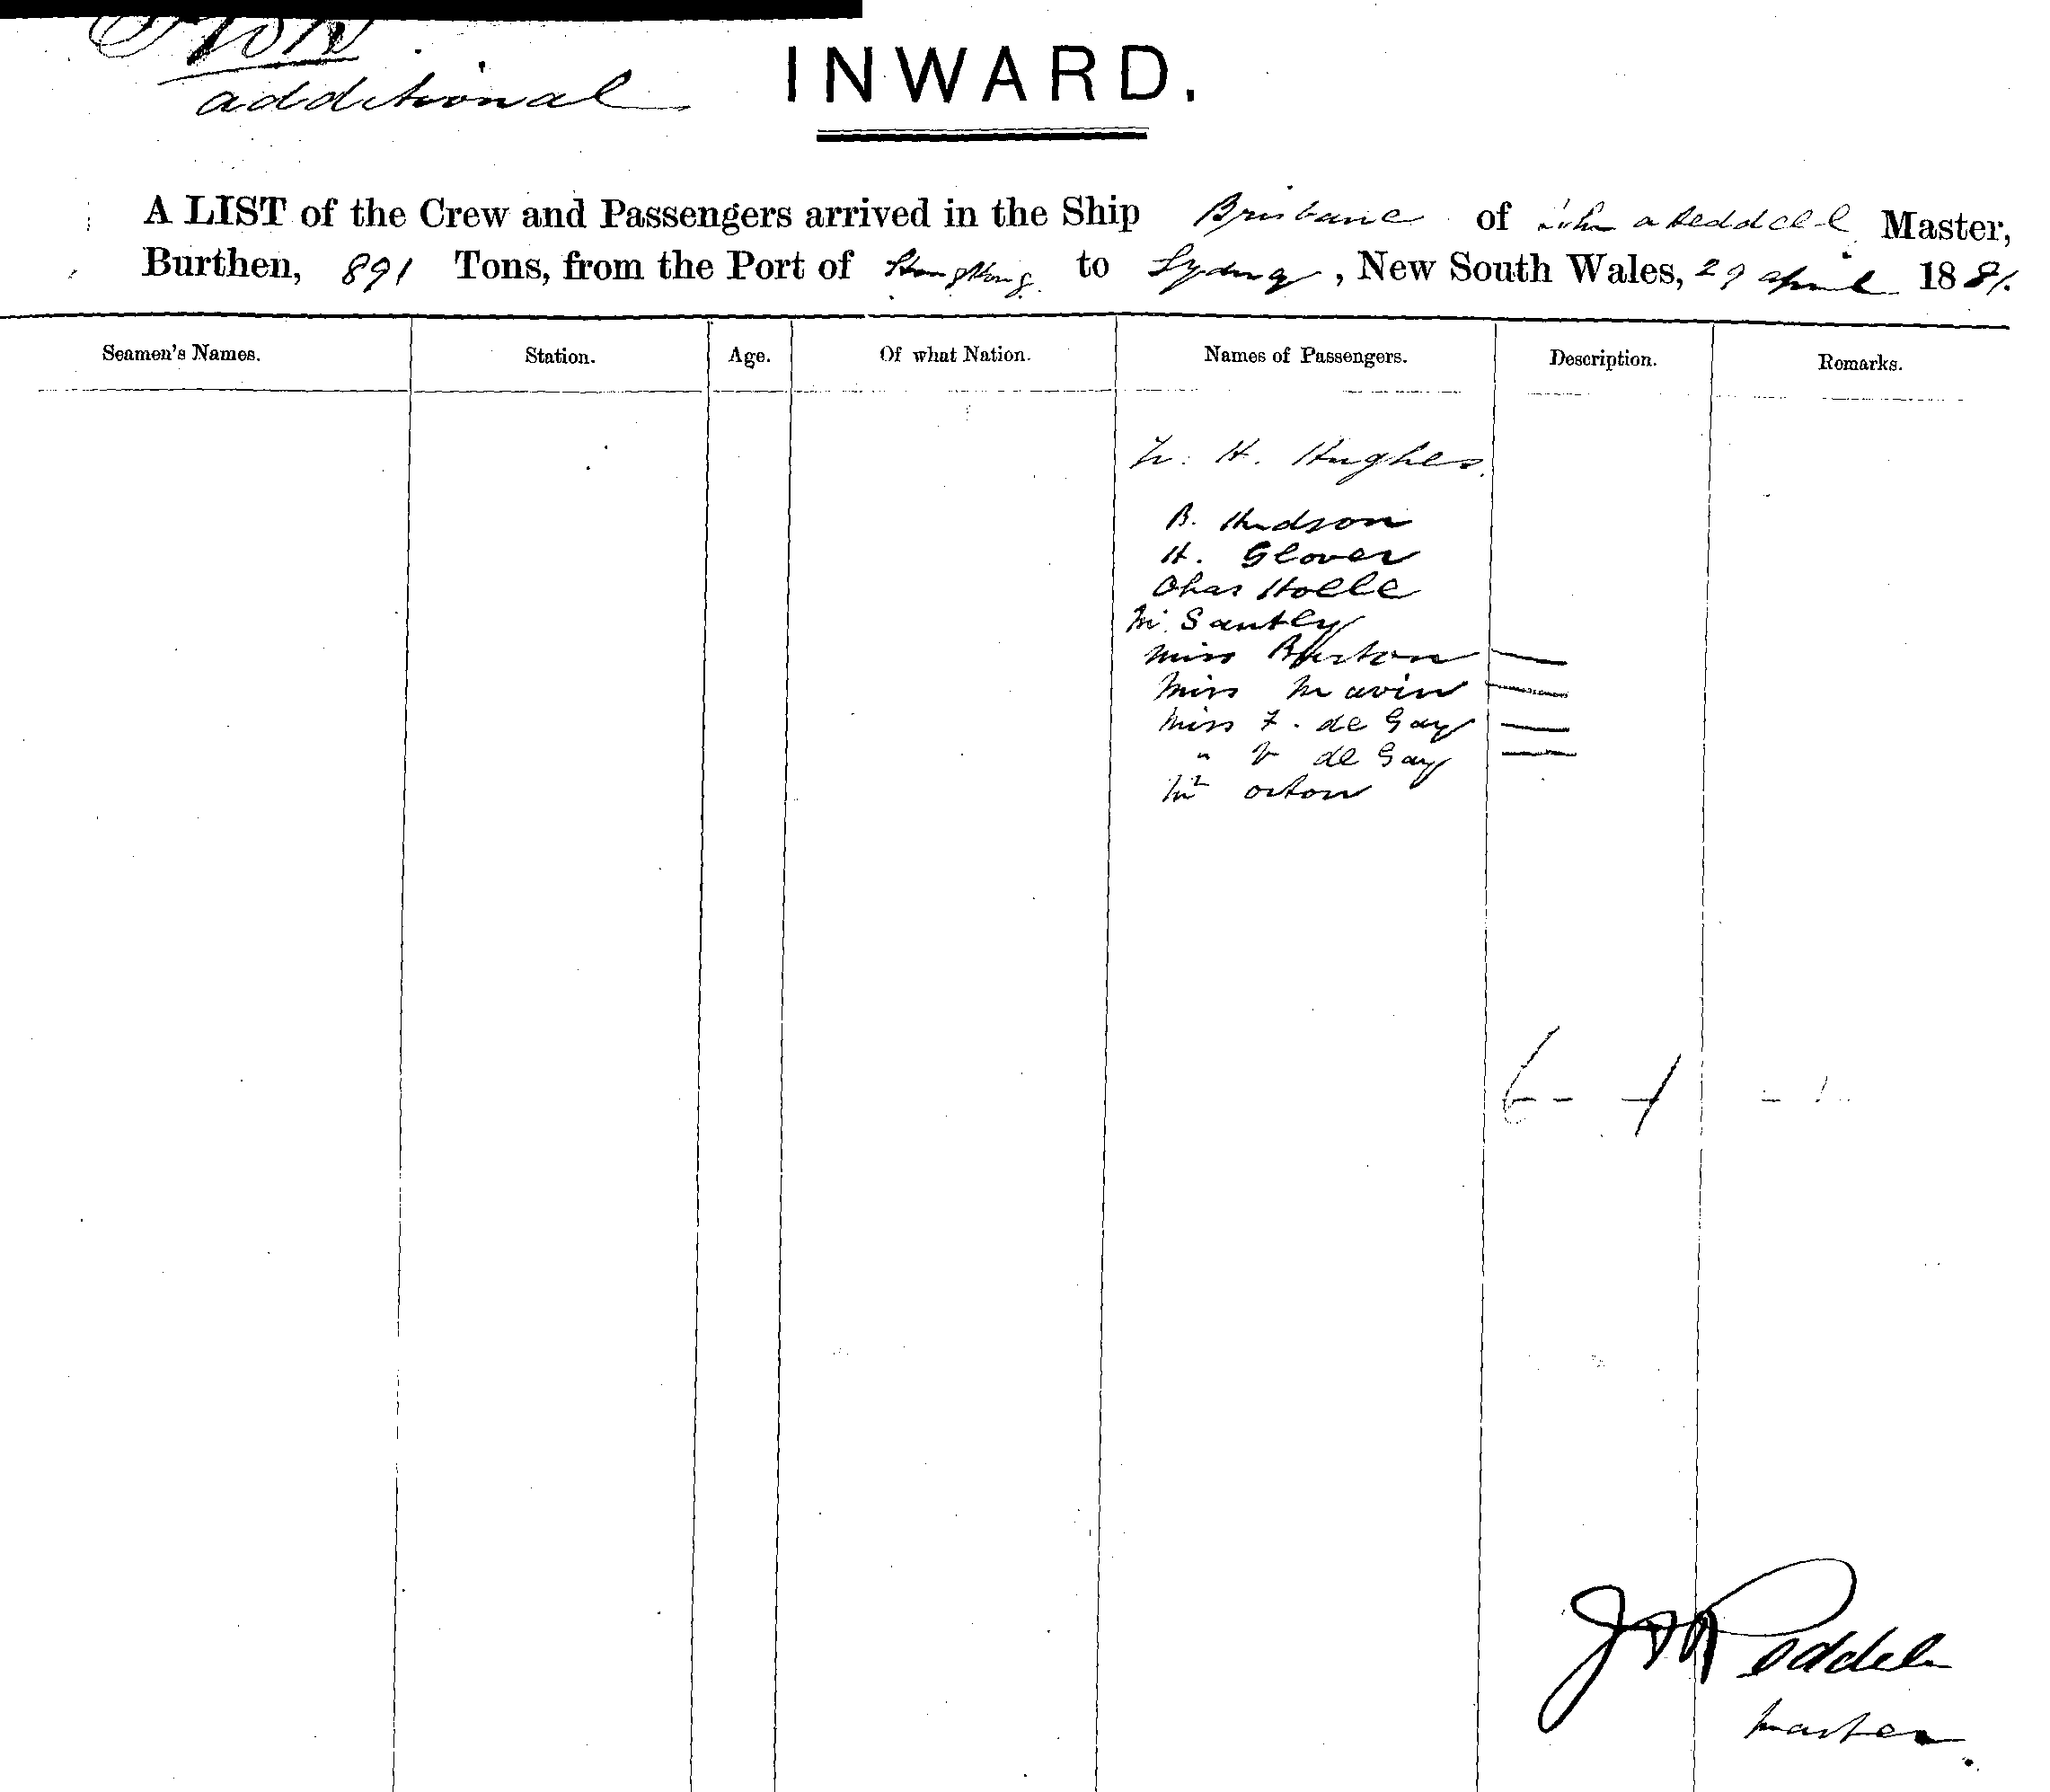 additional
INWARD.
A LIST of the Crew and Passengers arrived in the Ship Brisbane of John a Reddell Master,
Burthen, 891 Tons, from the Port of Hong Kong to Sydney, New South Wales, 29 april 1881.
Seamen's Names. Station. Age. Of what Nation. Names of Passengers. Description. Remarks.
H. Hughes.
B. Hudson
H. Glover
Chas Holle
Santley
Miss Burton —
Miss Mavin —
Miss F. de Gay —
" V de Gay —
Mr Orton
6 - 4 - 1
J A Reddell
Master